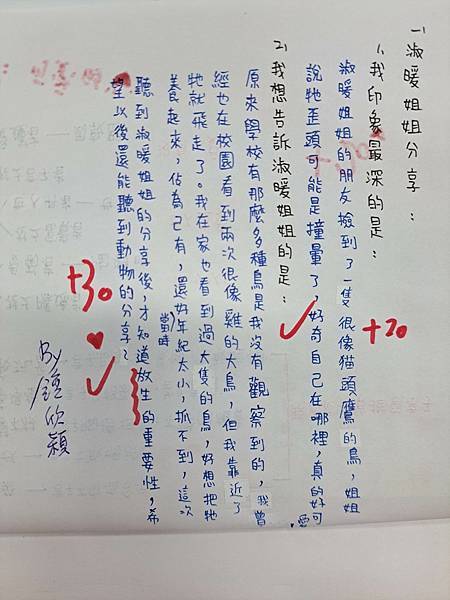 一、淑暖姐姐分享：
1、我印象最深的是：
淑暖姐姐的朋友撿到了一隻很像猫頭鷹的鳥，姐姐
說牠歪頭可能是撞暈了，好奇自己在哪裡，真的好可愛。
2、我想告訴淑暖姐姐的是：
原來學校有那麼多種鳥是我沒有觀察到的，我曾
經也在校園看到兩次很像雞的大鳥，但我靠近了
牠就飛走了。我在家也看到過大隻的鳥，好想把牠
養起來，佔為己有，還好當時年紀太小，抓不到，這次
聽到淑暖姐姐的分享後，才知道放生的重要性，希
望以後還能聽到動物的分享？
+20
+30
By
鍾欣穎